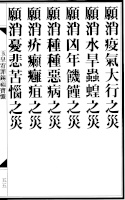 願消疫氣大行之災
願消水旱蟲蝗之災
願消凶年饑饉之災
願消種種惡病之災
願消疥癩癰疽之災
願消憂悲苦惱之災
玉皇宥罪錫福寶懺